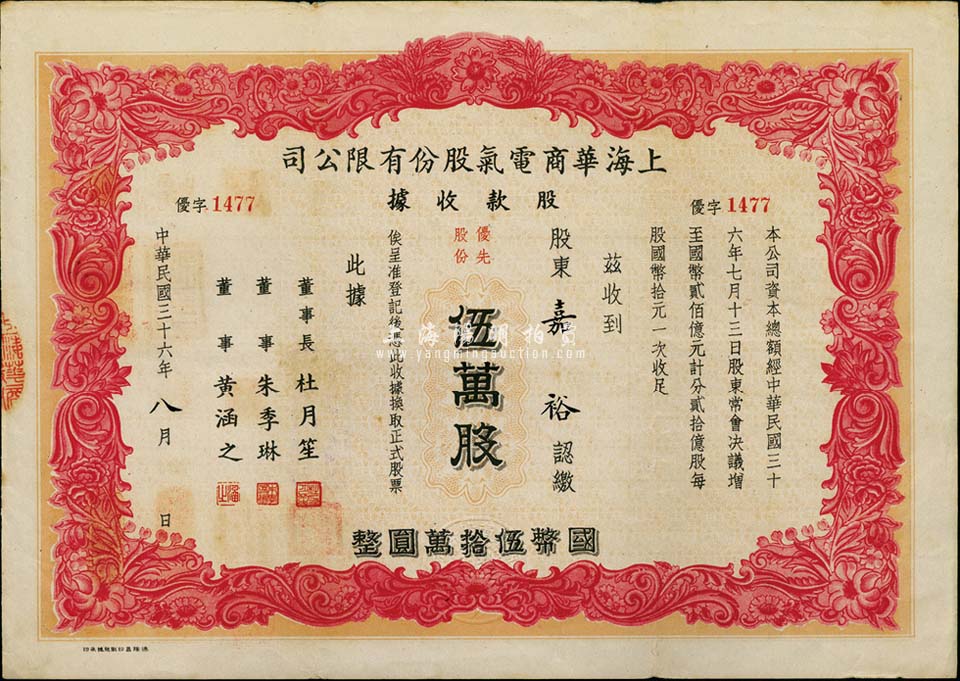 上海華商電氣股份有限公司
股款收據
優字 1477
優字 1477
本公司資本總額經中華民國三十
六年七月十三日股東常會决議增
至國幣貳佰億元計分貳拾億股每
股國幣拾元一次收足
茲收到
股東 嘉裕 認繳
優先
股份
伍萬股
國幣伍拾萬圓整
俟呈准登記後憑此收據換取正式股票
此據
董事長 杜月笙
董事 朱季琳
董事 黃涵之
中華民國三十六年 八月 日
www.yangmingauction.com